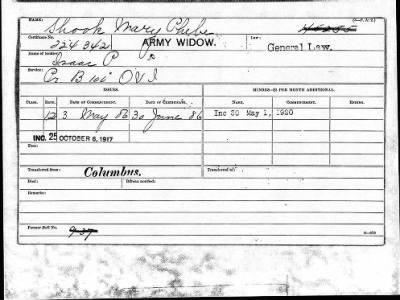 NAME:
Shook Mary Phebe
Certificate No.
224 342
ARMY WIDOW.
Law:
General Law.
Name of Soldier:
Isaac P
Service:
Co B 101 O V I
ISSUES.
MINORS—$2 PER MONTH ADDITIONAL.
CLASS. RATE. DATE OF COMMENCEMENT. DATE OF CERTIFICATE. NAME. COMMENCEMENT. ENDING.
12 3 May 86 30 June 86 Inc 30 May 1, 1920
INC. 25 OCTOBER 6, 1917
Transferred from Columbus. Transferred to:
Died: Bureau notified:
Remarks:
Former Roll No.